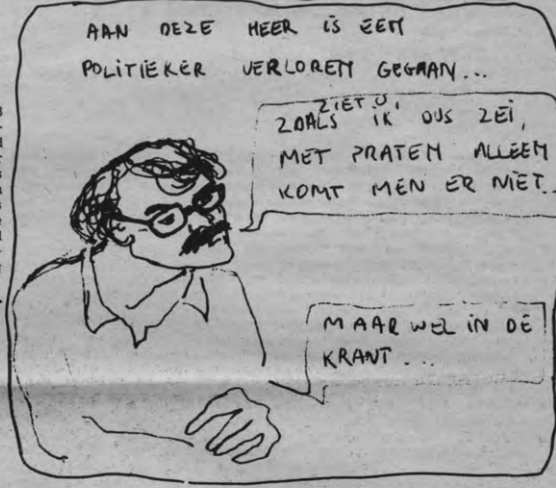 AAN DEZE HEER IS EEN
POLITIEKER VERLOREN GEGAAN...
ZIET U,
ZOALS IK DUS ZEI,
MET PRATEN ALLEEN
KOMT MEN ER NIET.
MAAR WEL IN DE
KRANT...